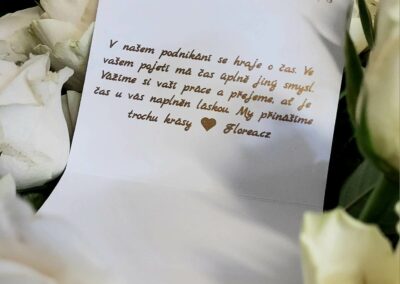 V našem podnikání se hraje o čas. Ve
vašem pojetí má čas úplně jiný smysl.
Vážíme si vaší práce a přejeme, ať je
čas u vás naplněn láskou. My přinášíme
trochu krásy ♥ Florea.cz